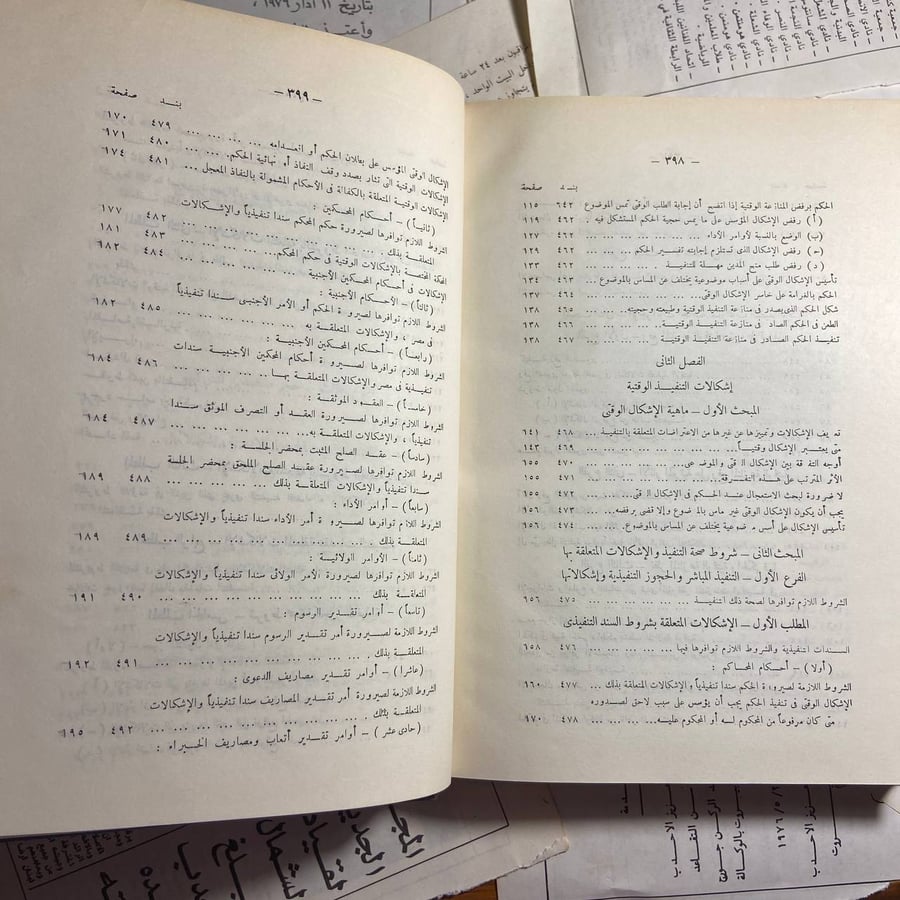 — ٣٩٨ —
بند صفحة
الحكم برفض المنازعة الوقتية إذا اتضح أن إجابة الطلب الوقتى تمس الموضوع ٤٦٢ ١١٥
( أ ) رفض الإشكال المؤسس على ما يمس حجية الحكم المستشكل فيه . ٤٦٢ ١١٩
(ب) الوضع بالنسبة لأوامر الأداء ... ... ... ... ... ... ٤٦٢ ١٢٧
(ح) رفض الإشكال الذى تستلزم إجابته تفسير الحكم ... ... ... ٤٦٢ ١٢٩
( د ) رفض طلب منح المدين مهلة للتنفيذ . ... ... ... ... ٤٦٢ ١٣٣
تأسيس الإشكال الوقتى على أسباب موضوعية يختلف عن المساس بالموضوع ... ٤٦٣ ١٣٤
الحكم بالغرامة على خاسر الإشكال الوقتى... ... ... ... ... ... ٤٦٤ ١٣٧
شكل الحكم الذى يصدر فى منازعة التنفيذ الوقتية وطبيعته وحجيته... ... ٤٦٥ ١٣٨
الطعن فى الحكم الصاد فى منازعة التنفيذ الوقتية... ... ... ... ٤٦٦ ١٣٨
تنفيذ الحكم الصادر فى منازعة التنفيذ الوقتية ... ... ... ... ٤٦٧ ١٣٨
الفصل الثانى
إشكالات التنفيذ الوقتية
المبحث الأول — ماهية الإشكال الوقتى
تعريف الإشكالات وتمييزها عن غيرها من الاعتراضات المتعلقة بالتنفيذ ... ٤٦٨ ١٤١
متى يعتبر الإشكال وقتياً... ... ... ... ... ... ... ٤٦٩ ١٤٣
أوجه التفرقة بين الإشكال الوقتى والموضوعى... ... ... ... ... ٤٧٠ ١٥٥
الأثر المترتب على هذه التفرقة... ... ... ... ... ... ٤٧١ ١٥٥
لا ضرورة لبحث الاستعجال عند الحكم فى الإشكال الوقتى ... ... ... ٤٧٢ ١٥٥
يجب أن يكون الإشكال الوقتى غير ماس بالموضوع وإلا قضى برفضه... ... ٤٧٣ ١٥٦
تأسيس الإشكال على أسس موضوعية يختلف عن المساس بالموضوع. ... ... ٤٧٤ ١٥٦
المبحث الثانى — شروط صحة التنفيذ والإشكالات المتعلقة بها
الفرع الأول — التنفيذ المباشر والحجوز التنفيذية وإشكالاتها
الشروط اللازم توافرها لصحة ذلك التنفيذ ... ... ... ... ... ٤٧٥ ١٥٦
المطلب الأول — الإشكالات المتعلقة بشروط السند التنفيذى
السندات التنفيذية والشروط اللازم توافرها فيها ... ... ... ... ٤٧٦ ١٥٨
( أولا ) — أحكام المحاكم :
الشروط اللازمة لصيرورة الحكم سنداً تنفيذياً والإشكالات المتعلقة بذلك ... ٤٧٧ ١٦٠
الإشكال الوقتى فى تنفيذ الحكم يجب أن يؤسس على سبب لاحق لصدوره
متى كان مرفوعاً من المحكوم له أو المحكوم عليه... ... ... ... ٤٧٨ ١٧٠
— ٣٩٩ —
بند صفحة
الإشكال الوقتى المؤسس على بطلان الحكم أو انعدامه ... ... ... ... ٤٧٩ ١٧٠
الإشكالات الوقتية التى تثار بصدد وقف النفاذ أو نهائية الحكم. ... ... ٤٨٠ ١٧١
الإشكالات الوقتية المتعلقة بالكفالة فى الأحكام المشمولة بالنفاذ المعجل ... ٤٨١ ١٧٤
(ثانياً) — أحكام المحكمين :
الشروط اللازم توافرها لصيرورة حكم المحكم سندا تنفيذياً والإشكالات
المتعلقة بذلك . ... ... ... ... ... ... ... ٤٨٢ ١٧٧
المحكمة المختصة بالإشكالات الوقتية فى حكم المحكم... ... ... ... ٤٨٣ ١٨١
الإشكالات فى أحكام المحكمين الأجنبية ... ... ... ... ... ٤٨٤ ١٨٢
(ثالثاً) — الأحكام الأجنبية :
الشروط اللازم توافرها لصيرورة الحكم أو الأمر الأجنبى سندا تنفيذياً
فى مصر ، والإشكالات المتعلقة به ... ... ... ... ... ٤٨٥ ١٨٢
(رابعاً) — أحكام المحكمين الأجنبية :
الشروط اللازم توافرها لصيرورة أحكام المحكمين الأجنبية سندات
تنفيذية فى مصر والإشكالات المتعلقة بها... ... ... ... ... ٤٨٦ ١٨٤
(خامساً) — العقود الموثقة :
الشروط اللازم توافرها لصيرورة العقد أو التصرف الموثق سندا
تنفيذياً ، والإشكالات المتعلقة به... ... ... ... ... ... ٤٨٧ ١٨٤
(سادساً) — عقد الصلح المثبت بمحضر الجلسة :
الشروط اللازم توافرها لصيرورة عقد الصلح الملحق بمحضر الجلسة
سندا تنفيذياً والإشكالات المتعلقة بذلك ... ... ... ... ... ٤٨٨ ١٨٩
(سابعاً) — أوامر الأداء :
الشروط اللازم توافرها لصيرورة أمر الأداء سندا تنفيذياً والإشكالات
المتعلقة بذلك . ... ... ... ... ... ... ... ٤٨٩ ١٨٩
(ثامناً) — الأوامر الولائية :
الشروط اللازم توافرها لصيرورة الأمر الولائى سندا تنفيذياً والإشكالات
المتعلقة بذلك ... ... ... ... ... ... ... ٤٩٠ ١٩١
(تاسعاً) — أوامر تقدير الرسوم :
الشروط اللازمة لصيرورة أمر تقدير الرسوم سندا تنفيذياً والإشكالات
المتعلقة بذلك... ... ... ... ... ... ... ... ٤٩١ ١٩٢
(عاشرا) — أوامر تقدير مصاريف الدعوى :
الشروط اللازمة لصيرورة أمر تقدير المصاريف سندا تنفيذياً والإشكالات
المتعلقة بذلك... ... ... ... ... ... ... ... ٤٩٢ ١٩٥
(حادى عشر) — أوامر تقدير أتعاب ومصاريف الخبراء :
بتاريخ ١١ آذار ١٩٧٦